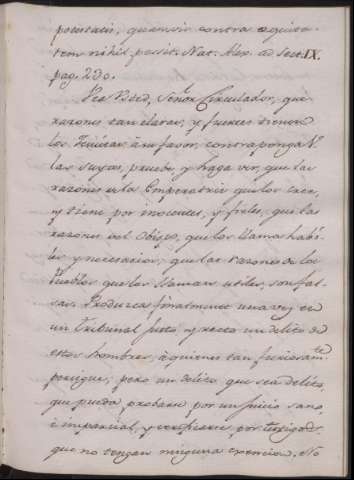 potestatis, quamvis contra æquita-
tem nihil possit. Nat. Alex. ad Sect. IX.
pag. 230.
Vea Vsted, Señor Circulador, que
razones tan claras, y fuertes tienen
los Jesuitas à su favor, contraponga V.
las suyas, pruebe, y haga ver, que las
razones de la Emperatriz que los cree,
y tiene por inocentes, y fieles, que las
razones del Obispo, que los llama hábi-
les y necesarios, que las razones de los
Pueblos que los llaman utiles, son fal-
sas. Produzca finalmente una vez en
un Tribunal justo, y recto un delito de
estos hombres, à quienes tan furiosam.te
persigue; pero un delito, que sea delito,
que pueda probarse por un Juicio sano,
è imparcial, y verificarse por testigos
que no tengan ninguna excepcion. No